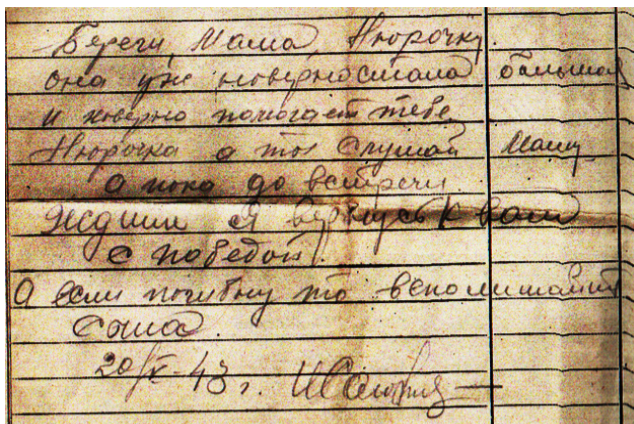 Береги, Мама, Нюрочку
она уже наверно стала большая
и наверно помогает тебе.
Нюрочка а ты слушай Маму
А пока до встречи
Ждите я вернусь к вам
с победой.
А если погибну то вспоминайте
Саша.
20/X-43 г.